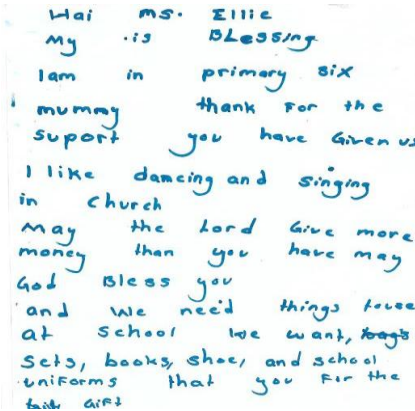 Hai ms. Ellie
My is BLessing
Iam in primary six
mummy thank For the
suport you have Given us
I like dancing and singing
in church
May the Lord Give more
money than you have may
God Bless you
and we need things touse
at school we want, bags
Sets, books, shoe, and school
uniforms that you For the
GiFt